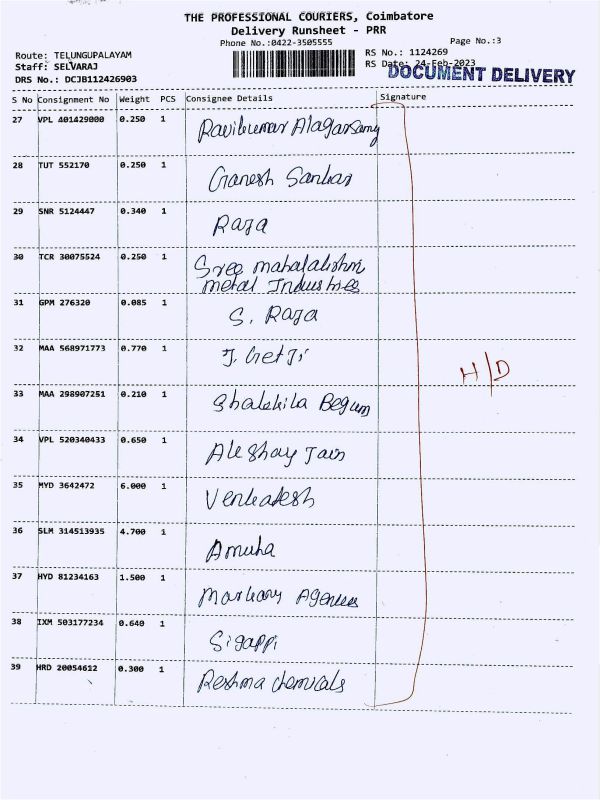 THE PROFESSIONAL COURIERS, Coimbatore
Delivery Runsheet - PRR
Phone No.:0422-3505555 Page No.:3
Route: TELUNGUPALAYAM RS No.: 1124269
Staff: SELVARAJ RS Date: 24-Feb-2023
DOCUMENT DELIVERY
DRS No.: DCJB112426903
S No Consignment No Weight PCS Consignee Details Signature
27 VPL 401429000 0.250 1 Ravikumar Alagarsamy
28 TUT 552170 0.250 1 Ganesh Sankar
29 SNR 5124447 0.340 1 Raja
30 TCR 30075524 0.250 1 Sree mahalakshmi
metal Industries
31 GPM 276320 0.085 1 S. Raja
32 MAA 568971773 0.770 1 J.
H/D
33 MAA 298907251 0.210 1 Shakkila Begum
34 VPL 520340433 0.650 1 Akshay Jain
35 MYD 3642472 6.000 1 Venkatesh
36 SLM 314513935 4.700 1 Amutha
37 HYD 81234163 1.500 1 Agencies
38 IXM 503177234 0.640 1 Sigappi
39 HRD 20054612 0.300 1 Reshma chemicals